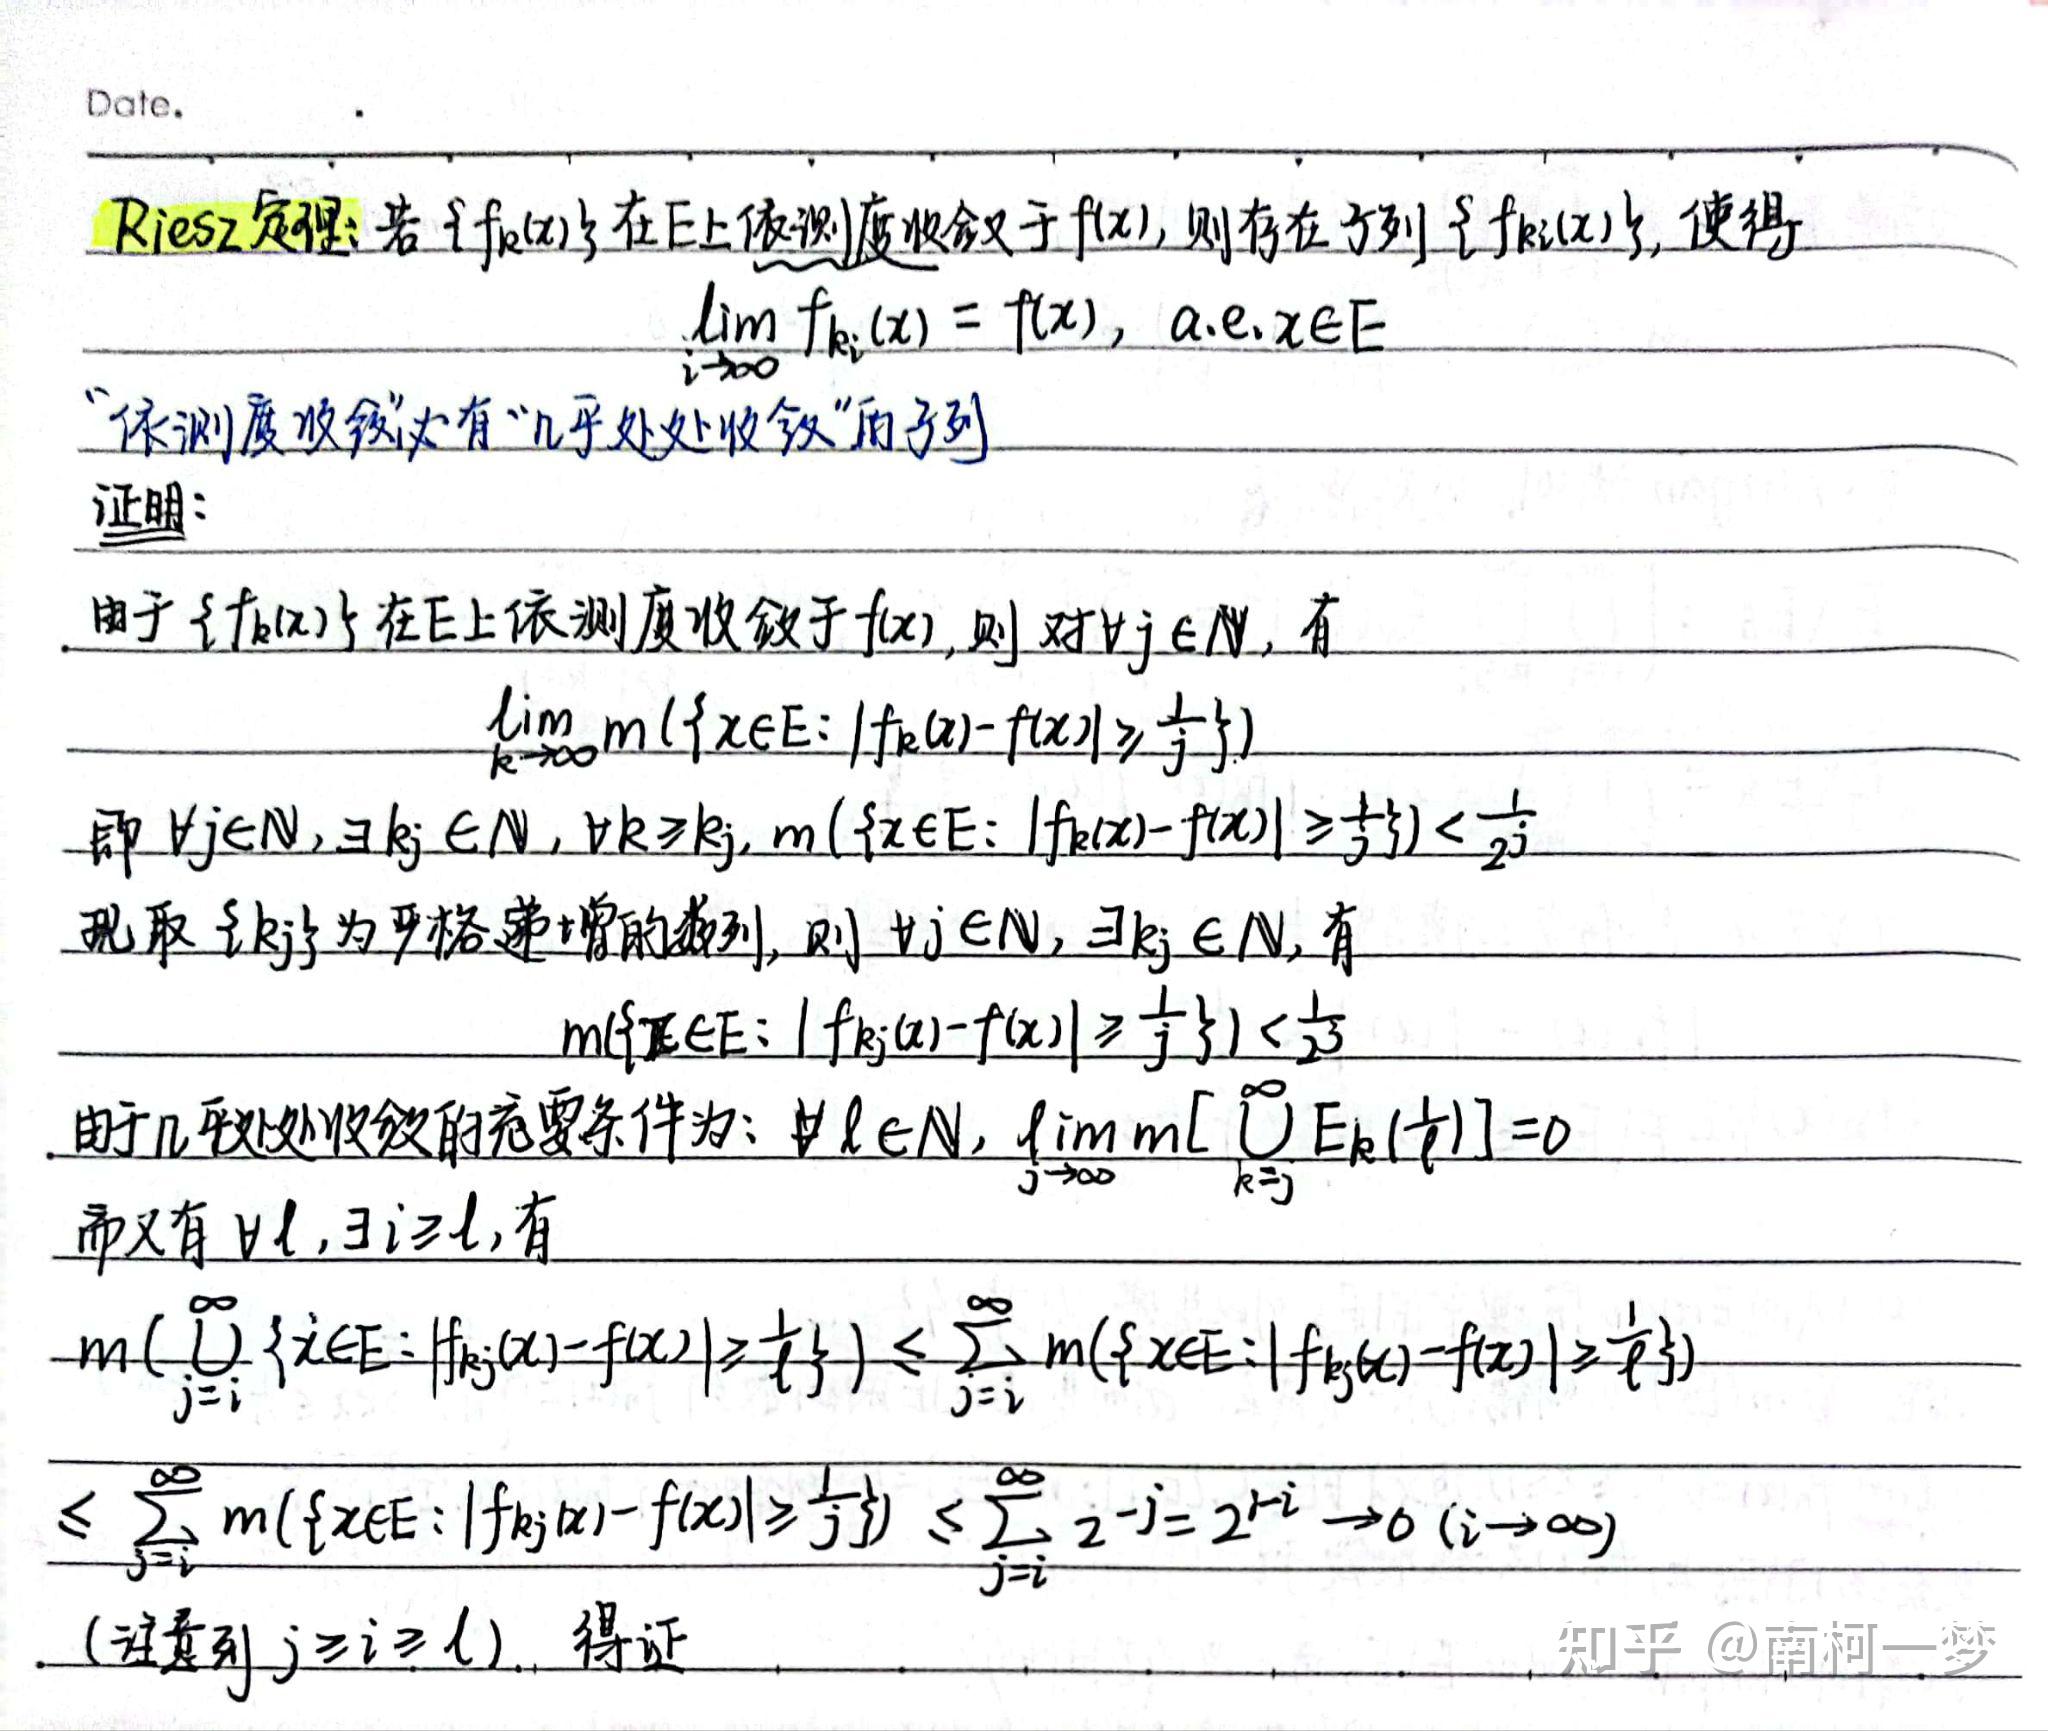 Date.
Riesz定理: 若{fₖ(x)}在E上依测度收敛于f(x), 则存在子列{f_{kᵢ}(x)}, 使得
lim_{i→∞} f_{kᵢ}(x) = f(x), a.e. x∈E
“依测度收敛”必有“几乎处处收敛”的子列
证明:
由于{fₖ(x)}在E上依测度收敛于f(x), 则对∀j∈ℕ, 有
lim_{k→∞} m({x∈E: |fₖ(x)-f(x)|≥1/j})
即∀j∈ℕ, ∃kⱼ∈ℕ, ∀k≥kⱼ, m({x∈E: |fₖ(x)-f(x)|≥1/j})<1/2^j
现取{kⱼ}为严格递增的数列, 则∀j∈ℕ, ∃kⱼ∈ℕ, 有
m({x∈E: |f_{kⱼ}(x)-f(x)|≥1/j})<1/2^j
由于几乎处处收敛的充要条件为: ∀l∈ℕ, lim_{j→∞} m[⋃_{k=j}^{∞} Eₖ(1/l)]=0
而又有∀l, ∃i≥l, 有
m(⋃_{j=i}^{∞} {x∈E: |f_{kⱼ}(x)-f(x)|≥1/l}) ≤ ∑_{j=i}^{∞} m({x∈E: |f_{kⱼ}(x)-f(x)|≥1/l})
≤ ∑_{j=i}^{∞} m({x∈E: |f_{kⱼ}(x)-f(x)|≥1/j}) ≤ ∑_{j=i}^{∞} 2^{-j} = 2^{1-i} →0 (i→∞)
(注意到j≥i≥l). 得证
知乎 @南柯一梦